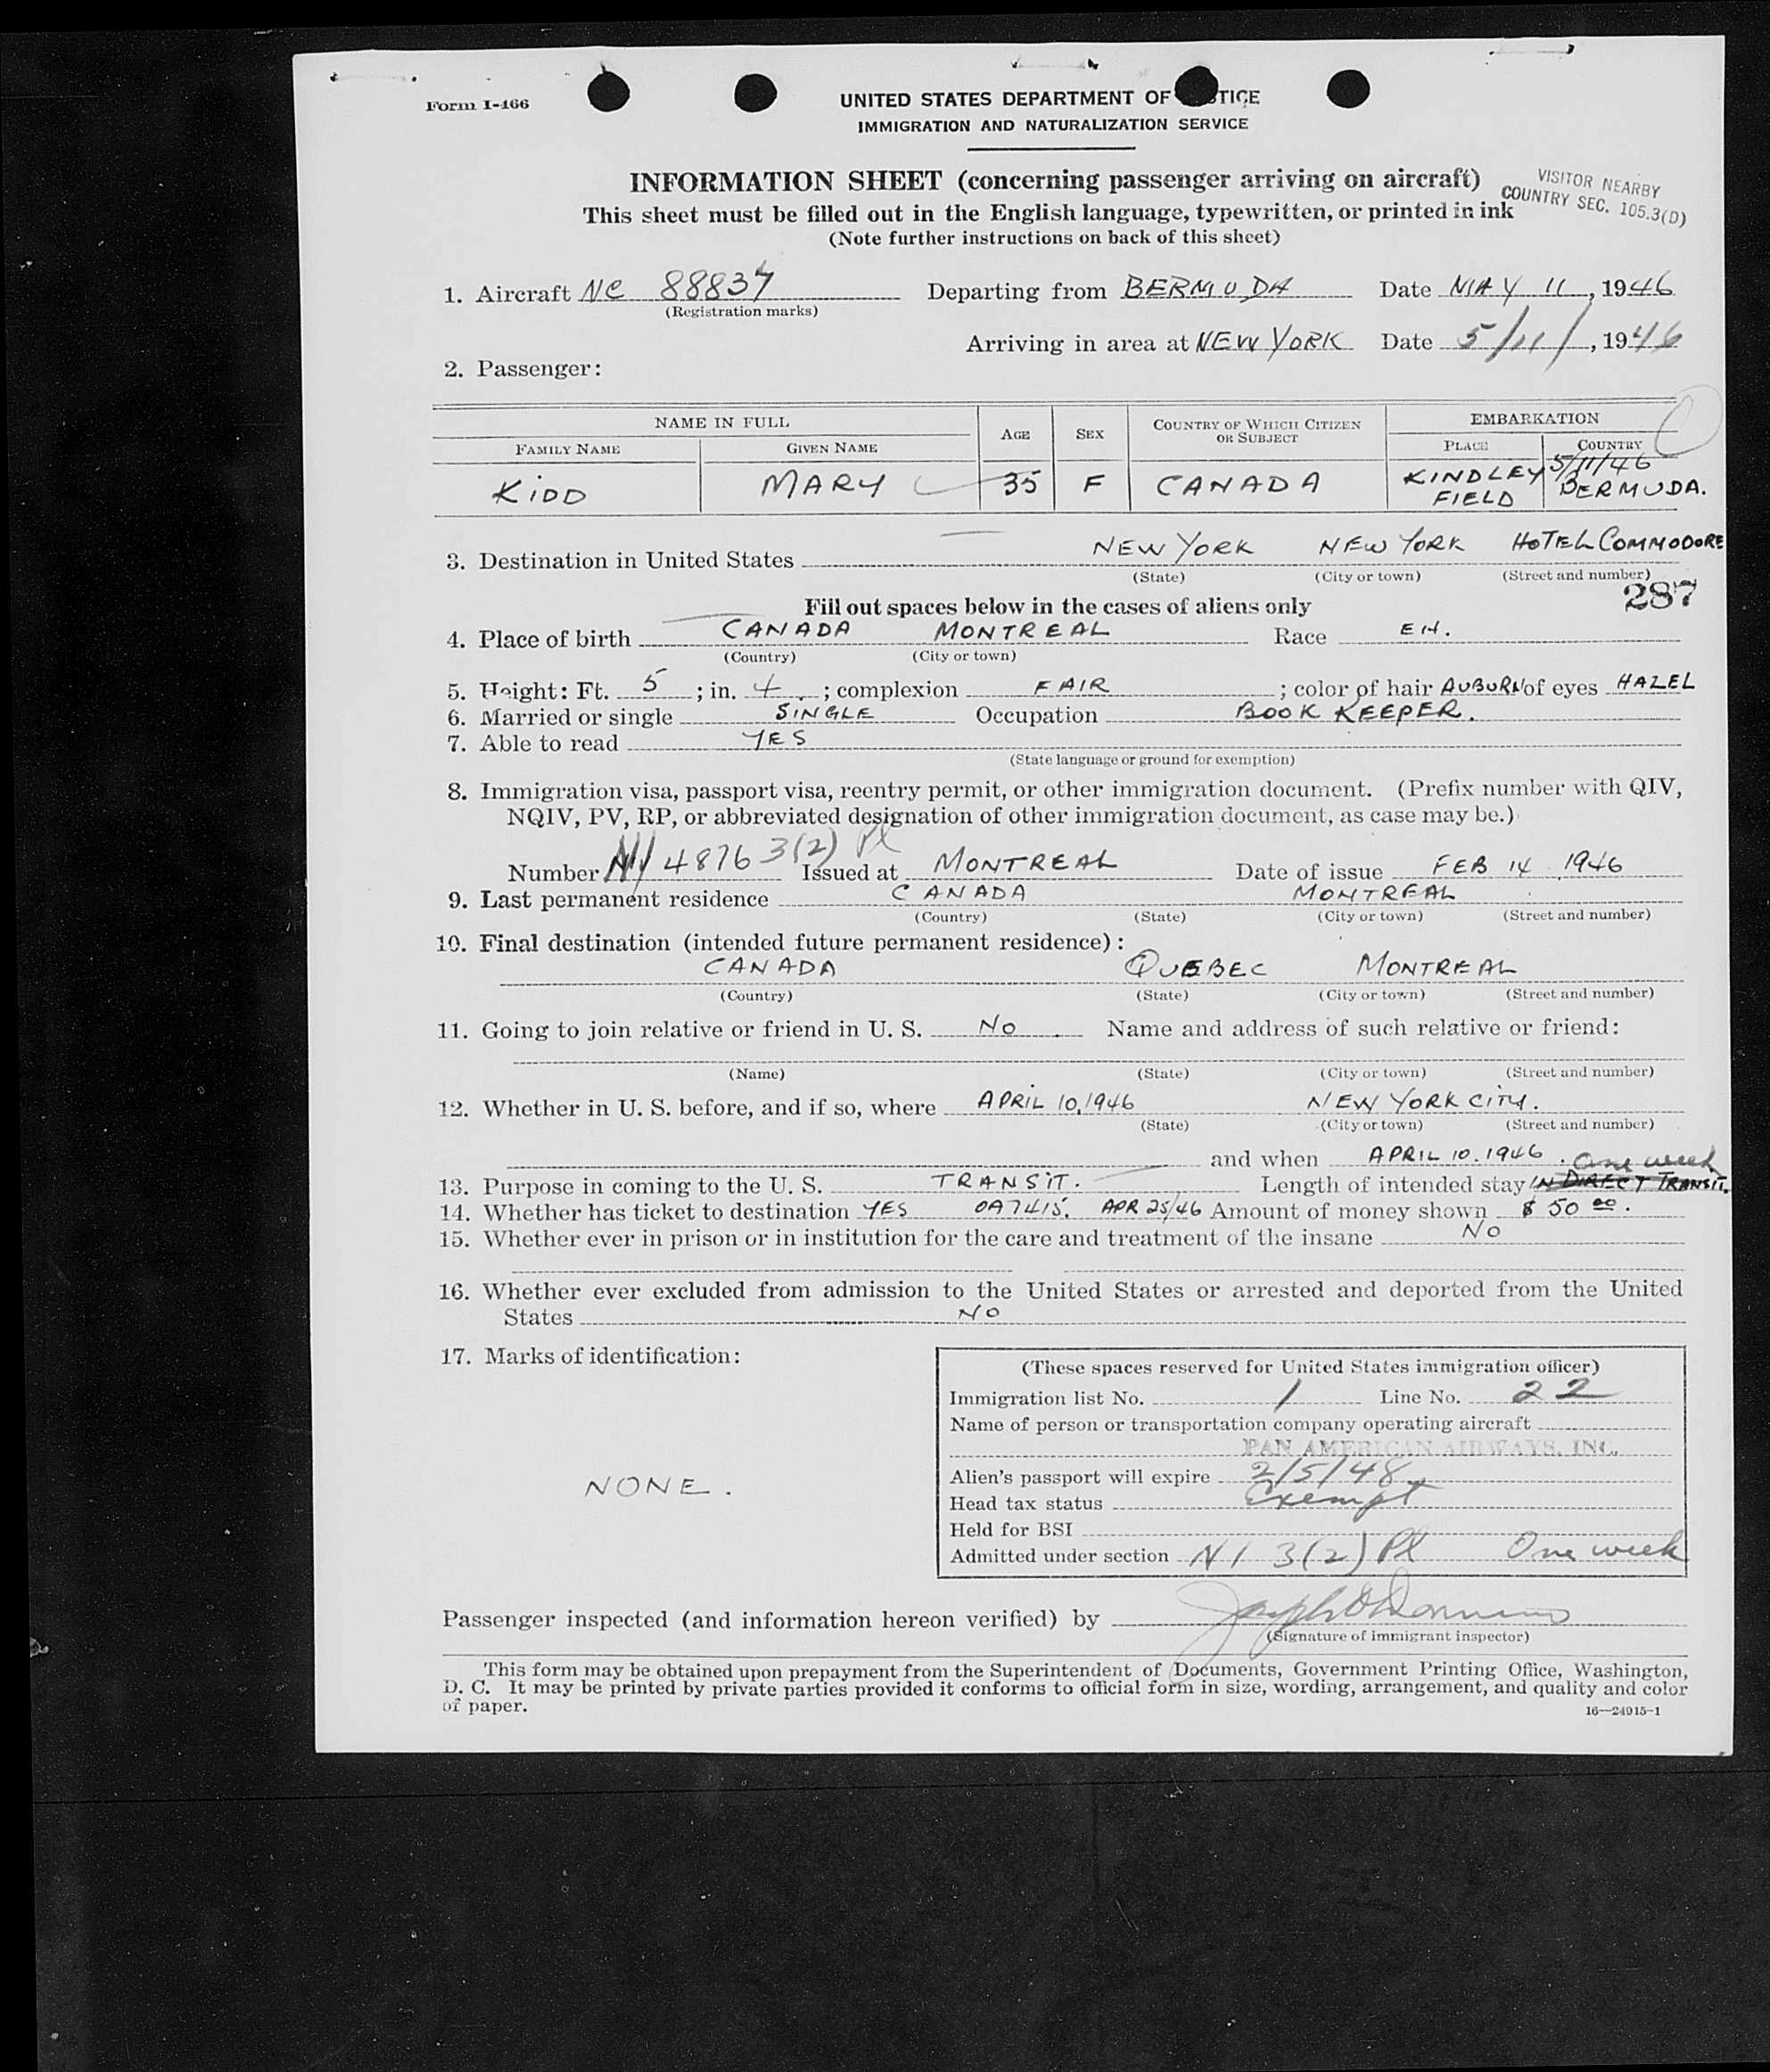 Form I-466
UNITED STATES DEPARTMENT OF TICE
IMMIGRATION AND NATURALIZATION SERVICE
INFORMATION SHEET (concerning passenger arriving on aircraft)
VISITOR NEARBY
COUNTRY SEC. 105.3(D)
This sheet must be filled out in the English language, typewritten, or printed in ink
(Note further instructions on back of this sheet)
1. Aircraft NC 88837 Departing from BERMUDA Date MAY 11, 1946
(Registration marks)
Arriving in area at NEW YORK Date 5/11/, 1946
2. Passenger:
NAME IN FULL AGE SEX COUNTRY OF WHICH CITIZEN OR SUBJECT EMBARKATION
FAMILY NAME GIVEN NAME PLACE COUNTRY
5/11/46
KIDD MARY 35 F CANADA KINDLEY FIELD BERMUDA.
3. Destination in United States NEW YORK NEW YORK HOTEL COMMODORE
(State) (City or town) (Street and number)
287
Fill out spaces below in the cases of aliens only
4. Place of birth CANADA MONTREAL Race EH.
(Country) (City or town)
5. Height: Ft. 5; in. 4.; complexion FAIR; color of hair AUBURN of eyes HAZEL
6. Married or single SINGLE Occupation BOOK KEEPER.
7. Able to read YES
(State language or ground for exemption)
8. Immigration visa, passport visa, reentry permit, or other immigration document. (Prefix number with QIV,
NQIV, PV, RP, or abbreviated designation of other immigration document, as case may be.)
Number 4876 3(2) Pl Issued at MONTREAL Date of issue FEB 14 1946
9. Last permanent residence CANADA MONTREAL
(Country) (State) (City or town) (Street and number)
10. Final destination (intended future permanent residence):
CANADA QUEBEC MONTREAL
(Country) (State) (City or town) (Street and number)
11. Going to join relative or friend in U. S. No. Name and address of such relative or friend:
(Name) (State) (City or town) (Street and number)
12. Whether in U. S. before, and if so, where APRIL 10, 1946 NEW YORK CITY.
(State) (City or town) (Street and number)
and when APRIL 10. 1946.
One week
13. Purpose in coming to the U. S. TRANSIT. Length of intended stay IN DIRECT TRANSIT.
14. Whether has ticket to destination YES 0A7415. APR 25/46 Amount of money shown $ 50 00.
15. Whether ever in prison or in institution for the care and treatment of the insane NO
16. Whether ever excluded from admission to the United States or arrested and deported from the United
States NO
17. Marks of identification:
NONE.
(These spaces reserved for United States immigration officer)
Immigration list No. 1 Line No. 22
Name of person or transportation company operating aircraft
PAN AMERICAN AIRWAYS, INC.
Alien's passport will expire 2/5/48
Head tax status Exempt
Held for BSI
Admitted under section NI 3(2) Pl One week
Passenger inspected (and information hereon verified) by
(Signature of immigrant inspector)
This form may be obtained upon prepayment from the Superintendent of Documents, Government Printing Office, Washington,
D. C. It may be printed by private parties provided it conforms to official form in size, wording, arrangement, and quality and color
of paper.
16—24915-1